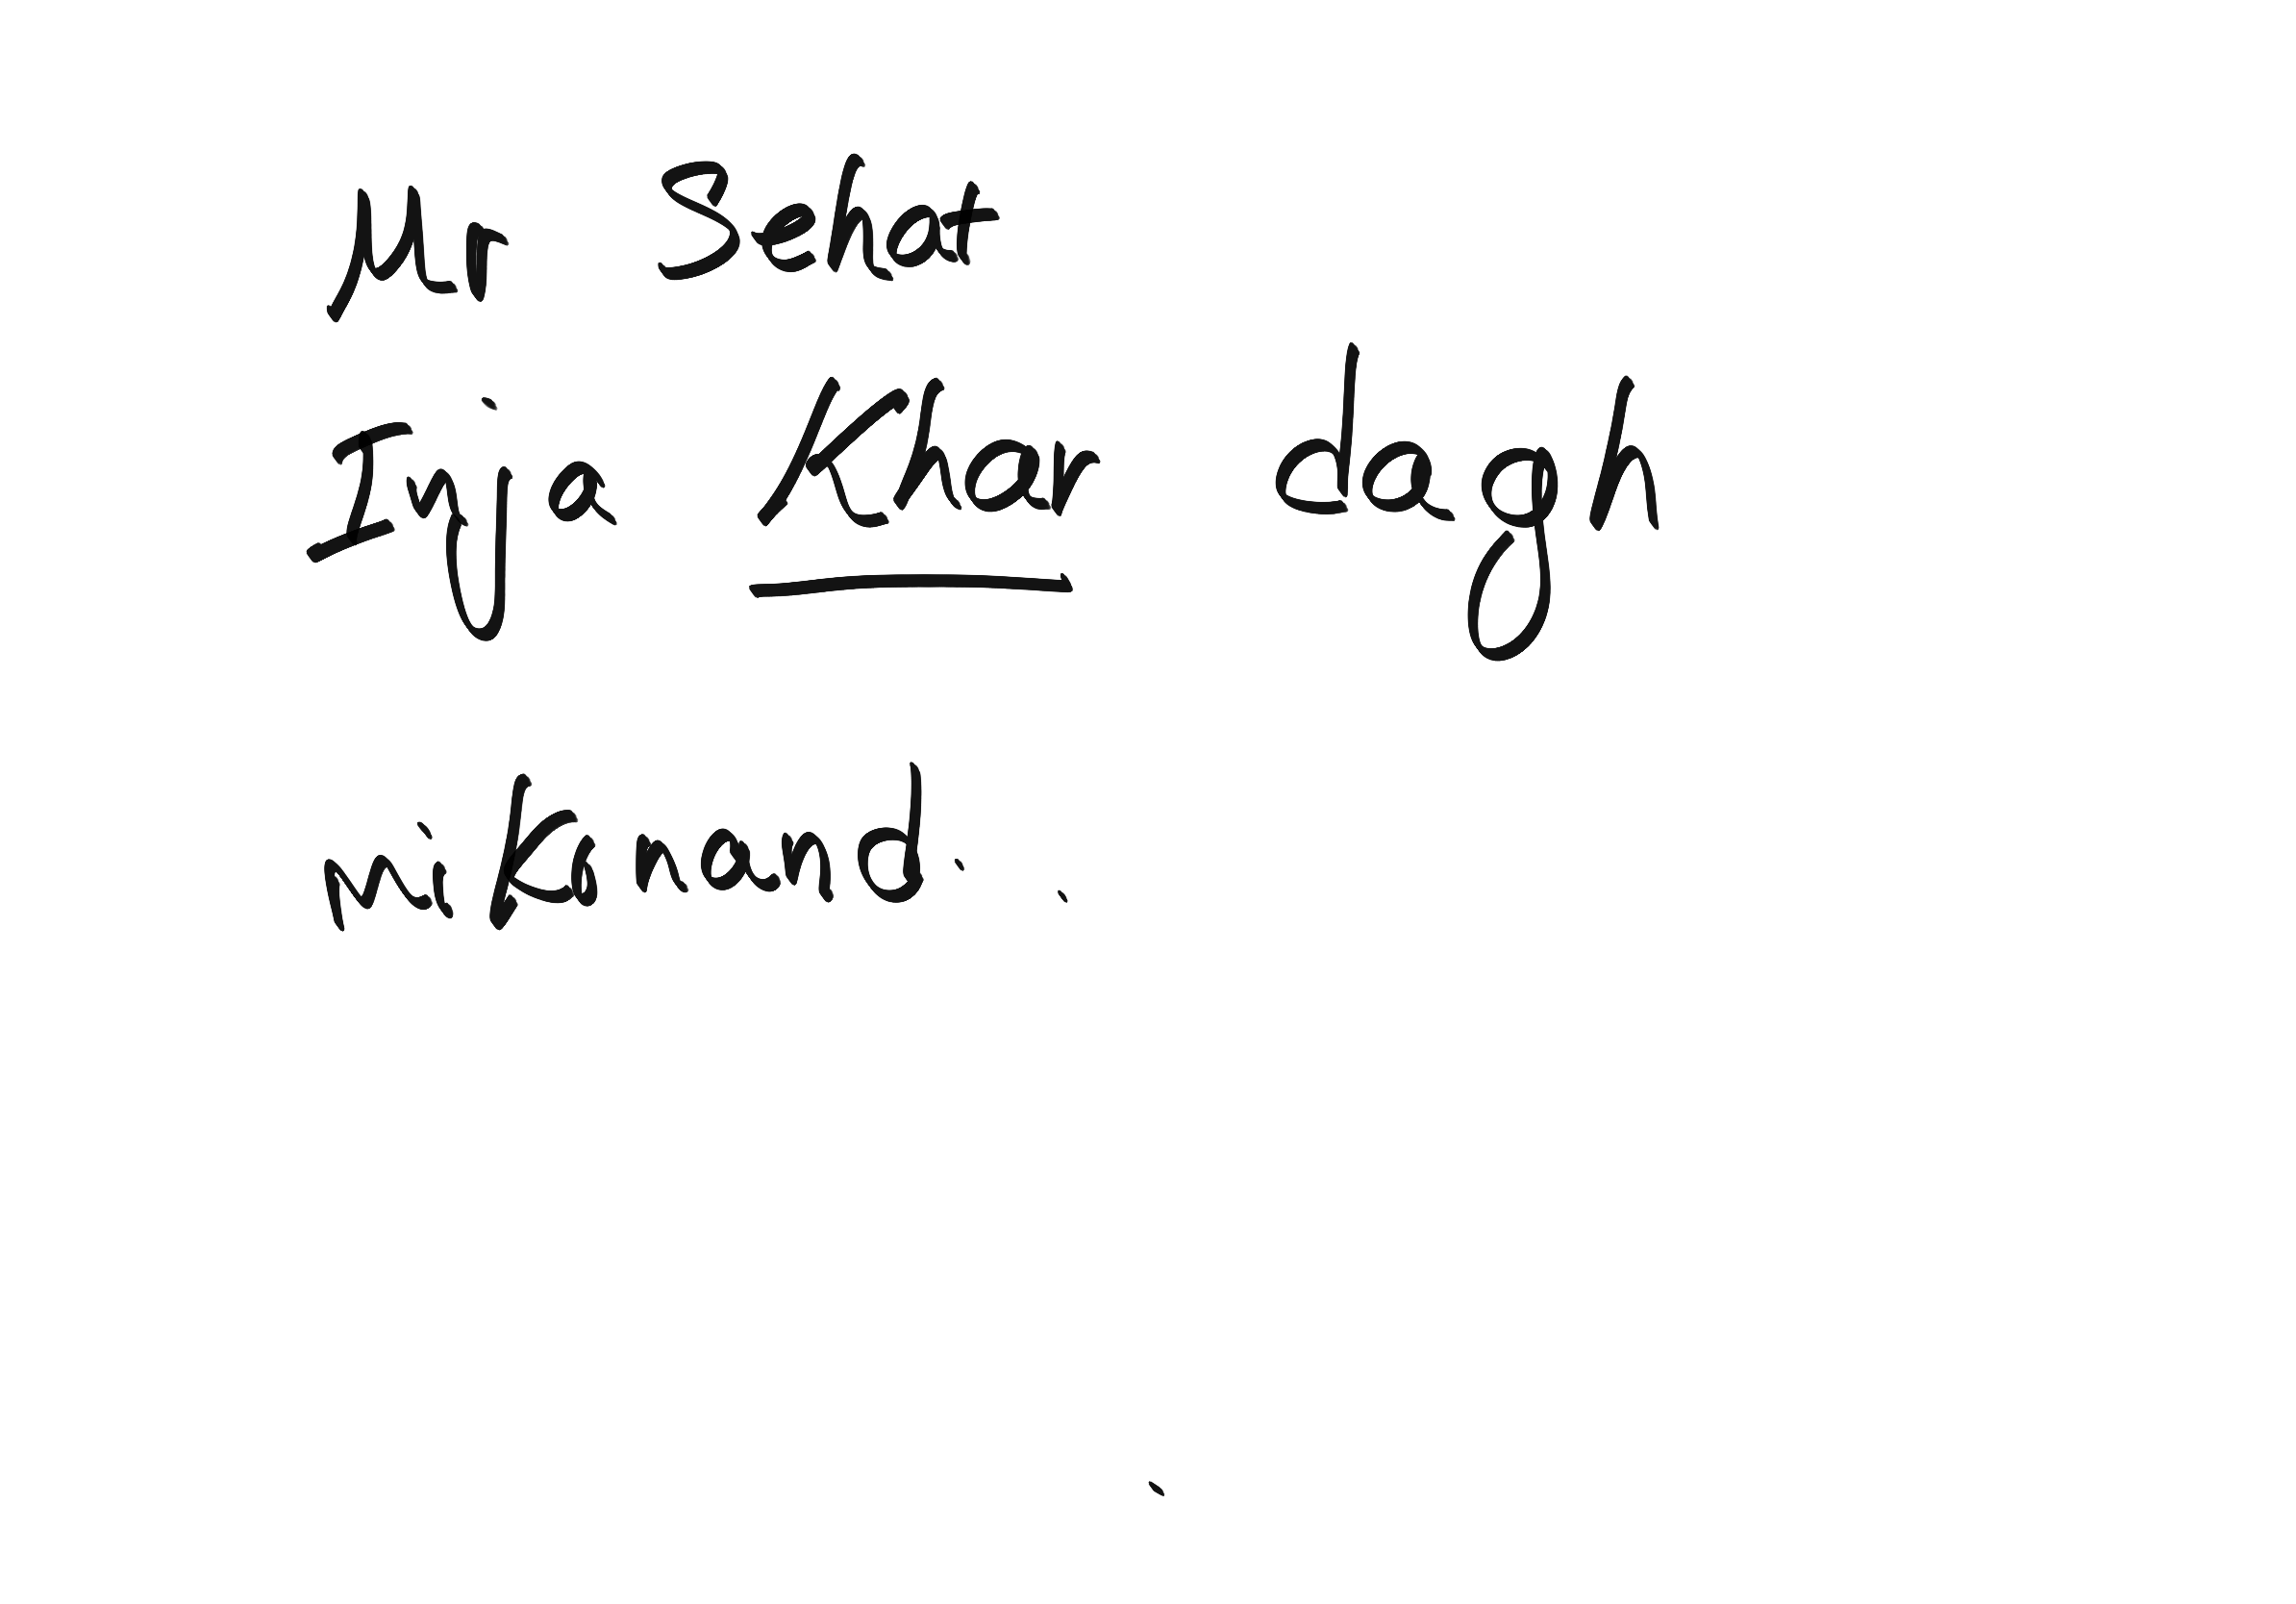 Mr Sehat
Inja Khar dagh
mikonand.